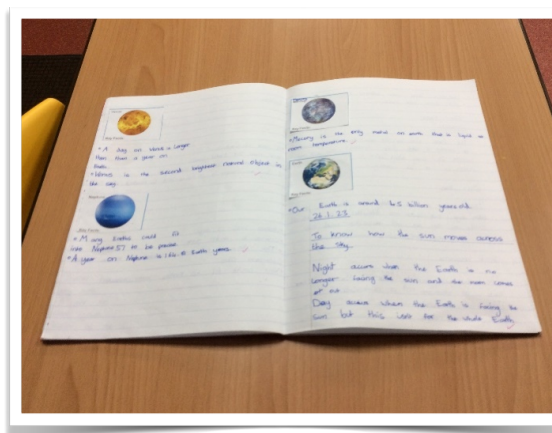 Venus
Key Facts:
• A day on Venus is longer
than than a year on
there.
• Venus is the second brightest natural object in
the sky.
Neptune
Key Facts:
• Many Earths could fit
into Neptune 57 to be precise.
• A year on Neptune is Earth years.
Mercury
Key Facts:
• Mercury is the only metal on earth that is liquid at
room temperature.
Earth
• Our Earth is around 4.5 billion years old.
To know how the sun moves across
the sky.
Night occurs when the Earth is no
longer facing the sun and the moon comes
out.
Day occurs when the Earth is facing the
sun but this isnt the whole Earth